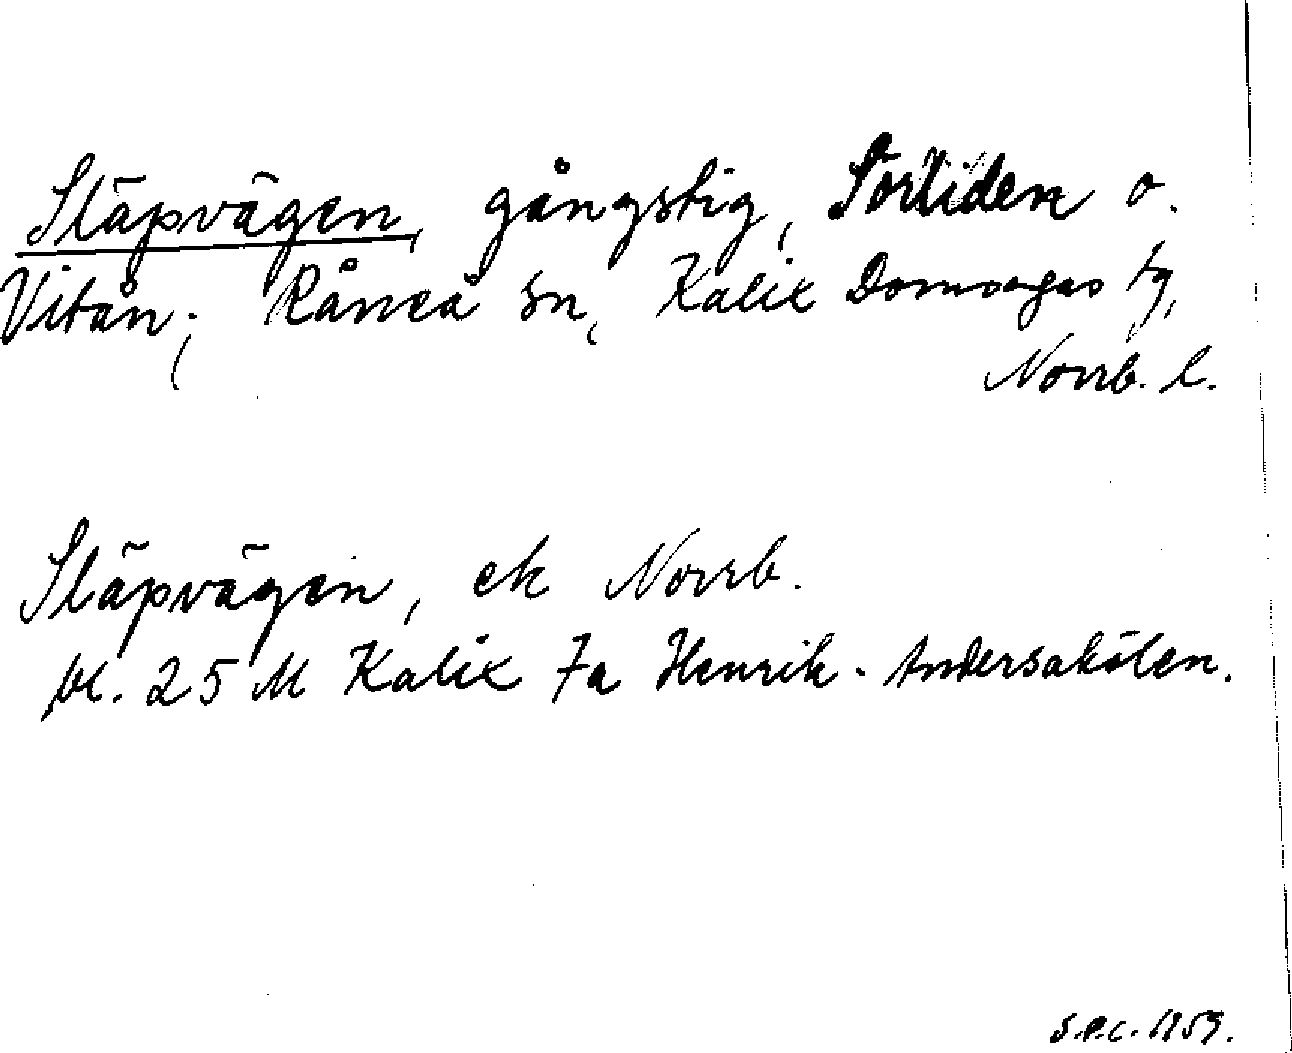 Släpvägen, gångstig, Sörliden o.
Vitån; Råneå sn, Kalix Domsagas tg,
Norrb. l.
Släpvägen, ek Norrb.
bl. 25 M Kalix 7a Henrik-Andersakölen.
s.e.c. 1959.